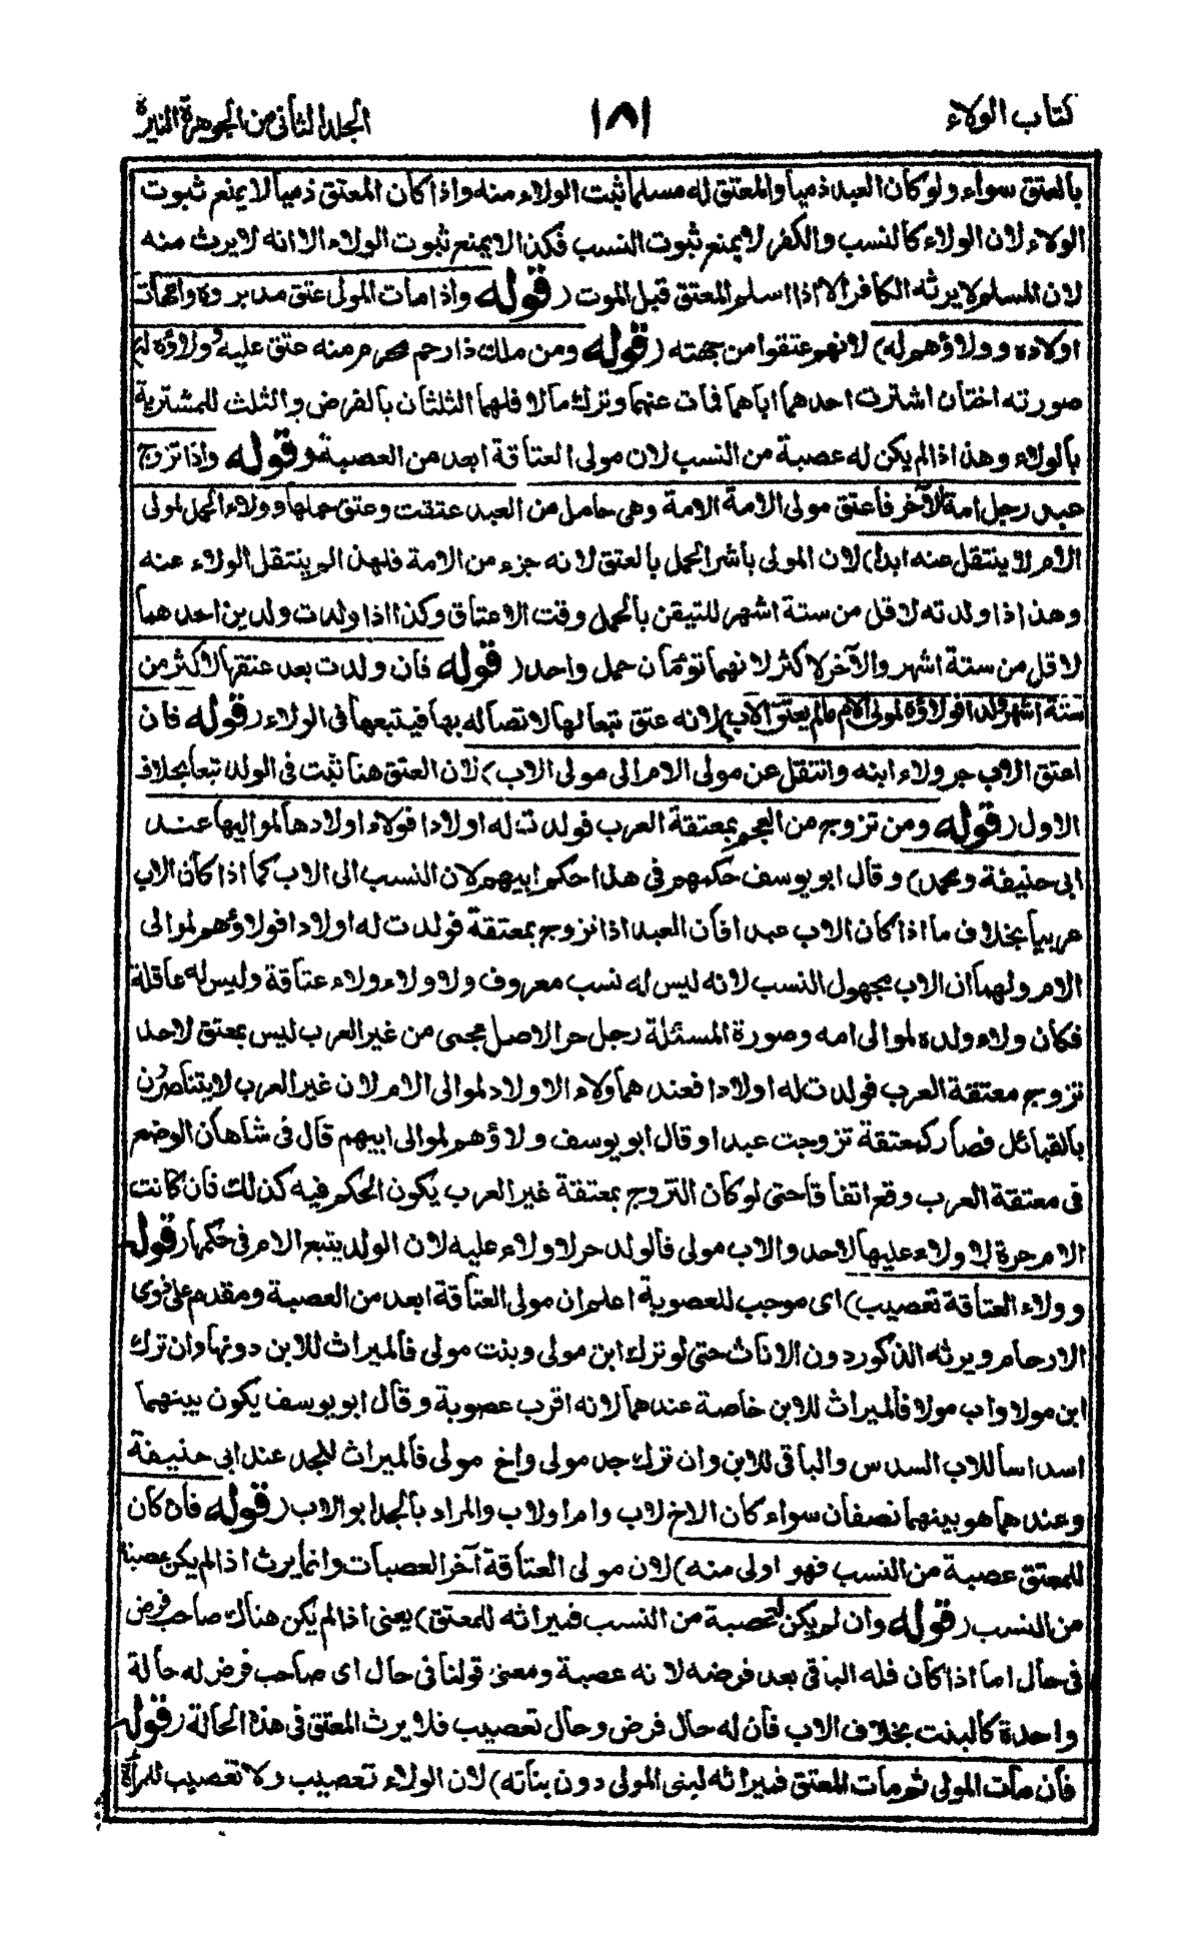 كتاب الولاء
١٨١
المجلد الثاني من الجوهرة النيرة
بالعتق سواء ولو كان العبد ذميا والمعتق له مسلما ثبت الولاء منه واذا كان المعتق ذميا لا يمنع ثبوت
الولاء لان الولاء كالنسب والكفر لا يمنع ثبوت النسب فكذا لا يمنع ثبوت الولاء الا انه لا يرث منه
لان المسلم لا يرثه الكافر الا اذا اسلم المعتق قبل الموت (قوله واذا مات المولى عتق مدبروه وامهات
اولاده وولاؤهم له) لانهم عتقوا من جهته (قوله ومن ملك ذا رحم محرم منه عتق عليه وولاؤه له)
صورته اختان اشترت احدهما اباهما فمات عنهما وترك مالا فلهما الثلثان بالفرض والثلث للمشترية
بالولاء وهذا اذا لم يكن له عصبة من النسب لان مولى العتاقة ابعد من العصبة (قوله واذا تزوج
عبد رجل امة لآخر فاعتق مولى الامة الامة وهى حامل من العبد عتقت وعتق حملها وولاء الحمل لمولى
الام لا ينتقل عنه ابدا) لان المولى باشر الحمل بالعتق لانه جزء من الامة فلهذا لم ينتقل الولاء عنه
وهذا اذا ولدته لاقل من ستة اشهر للتيقن بالحمل وقت الاعتاق وكذا اذا ولدت ولدين احدهما
لاقل من ستة اشهر والآخر لاكثر لانهما توئمان حمل واحد (قوله فان ولدت بعد عتقها لاكثر من
ستة اشهر ولدا فولاؤه لمولى الام مالم يعتق الاب) لانه عتق تبعا لها لاتصاله بها فيتبعها فى الولاء (قوله فان
اعتق الاب جر ولاء ابنه وانتقل عن مولى الام الى مولى الاب) لان العتق هنا ثبت فى الولد تبعا بخلاف
الاول (قوله ومن تزوج من العجم بمعتقة العرب فولدت له اولادا فولاء اولادها لمواليها عند
ابى حنيفة ومحمد) وقال ابو يوسف حكمهم فى هذا حكم ابيهم لان النسب الى الاب كما اذا كان الاب
عربيا بخلاف ما اذا كان الاب عبدا فان العبد اذا تزوج بمعتقة فولدت له اولادا فولاؤهم لموالى
الام ولهما ان الاب مجهول النسب لانه ليس له نسب معروف ولا ولاء ولاء عتاقة وليس له عاقلة
فكان ولاء ولده لموالى امه وصورة المسئلة رجل حر الاصل عجمى من غير العرب ليس بمعتق لاحد
تزوج معتقة العرب فولدت له اولادا فعندهما ولاء الاولاد لموالى الام لان غير العرب لا يتناصرن
بالقبائل فصار كمعتقة تزوجت عبدا وقال ابو يوسف ولاؤهم لموالى ابيهم قال فى شاهان الوضع
فى معتقة العرب وقع اتفاقا حتى لو كان التزوج بمعتقة غير العرب يكون الحكم فيه كذلك فان كانت
الام حرة لا ولاء عليها لاحد والاب مولى فالولد حر لا ولاء عليه لان الولد يتبع الام فى حكمها (قوله
وولاء العتاقة تعصيب) اى موجب للعصوبة اعلم ان مولى العتاقة ابعد من العصبة ومقدم على ذوى
الارحام ويرثه الذكور دون الاناث حتى لو ترك ابن مولى وبنت مولى فالميراث للابن دونها وان ترك
ابن مولا واب مولا فالميراث للابن خاصة عندهما لانه اقرب عصوبة وقال ابو يوسف يكون بينهما
اسداسا للاب السدس والباقى للابن وان ترك جد مولى واخ مولى فالميراث للجد عند ابى حنيفة
وعندهما هو بينهما نصفان سواء كان الاخ لاب وام او لاب والمراد بالجد ابو الاب (قوله فان كان
للمعتق عصبة من النسب فهو اولى منه) لان مولى العتاقة آخر العصبات وانما يرث اذا لم يكن عصبة
من النسب (قوله وان لم يكن له عصبة من النسب فميراثه للمعتق) يعنى اذا لم يكن هناك صاحب فرض
فى حال اما اذا كان فله الباقى بعد فرضه لانه عصبة ومعنى قولنا فى حال اى صاحب فرض له حالة
واحدة كالبنت بخلاف الاب فان له حال فرض وحال تعصيب فلا يرث المعتق فى هذه الحالة (قوله
فان مات المولى ثم مات المعتق فميراثه لبنى المولى دون بناته) لان الولاء تعصيب ولا تعصيب للمرأة